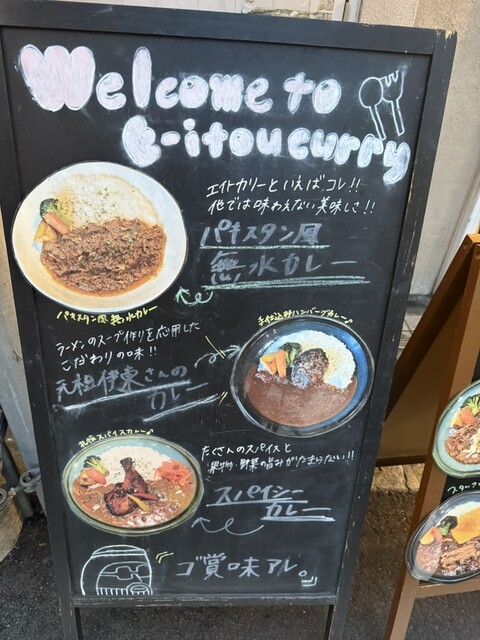 Welcome to
e-itou curry
エイトカリーといえばコレ!!
他では味わえない美味しさ!!
パキスタン風
無水カレー
パキスタン風無水カレー
ラーメンのスープ作りを応用した
こだわりの味!!
元祖伊東さんの
カレー
手仕込みハンバーグカレー♪
札幌スパイスカレー♪
たくさんのスパイスと
果物・野菜の旨みがたまらない!!
スパイシー
カレー
ゴ賞味アレ。』